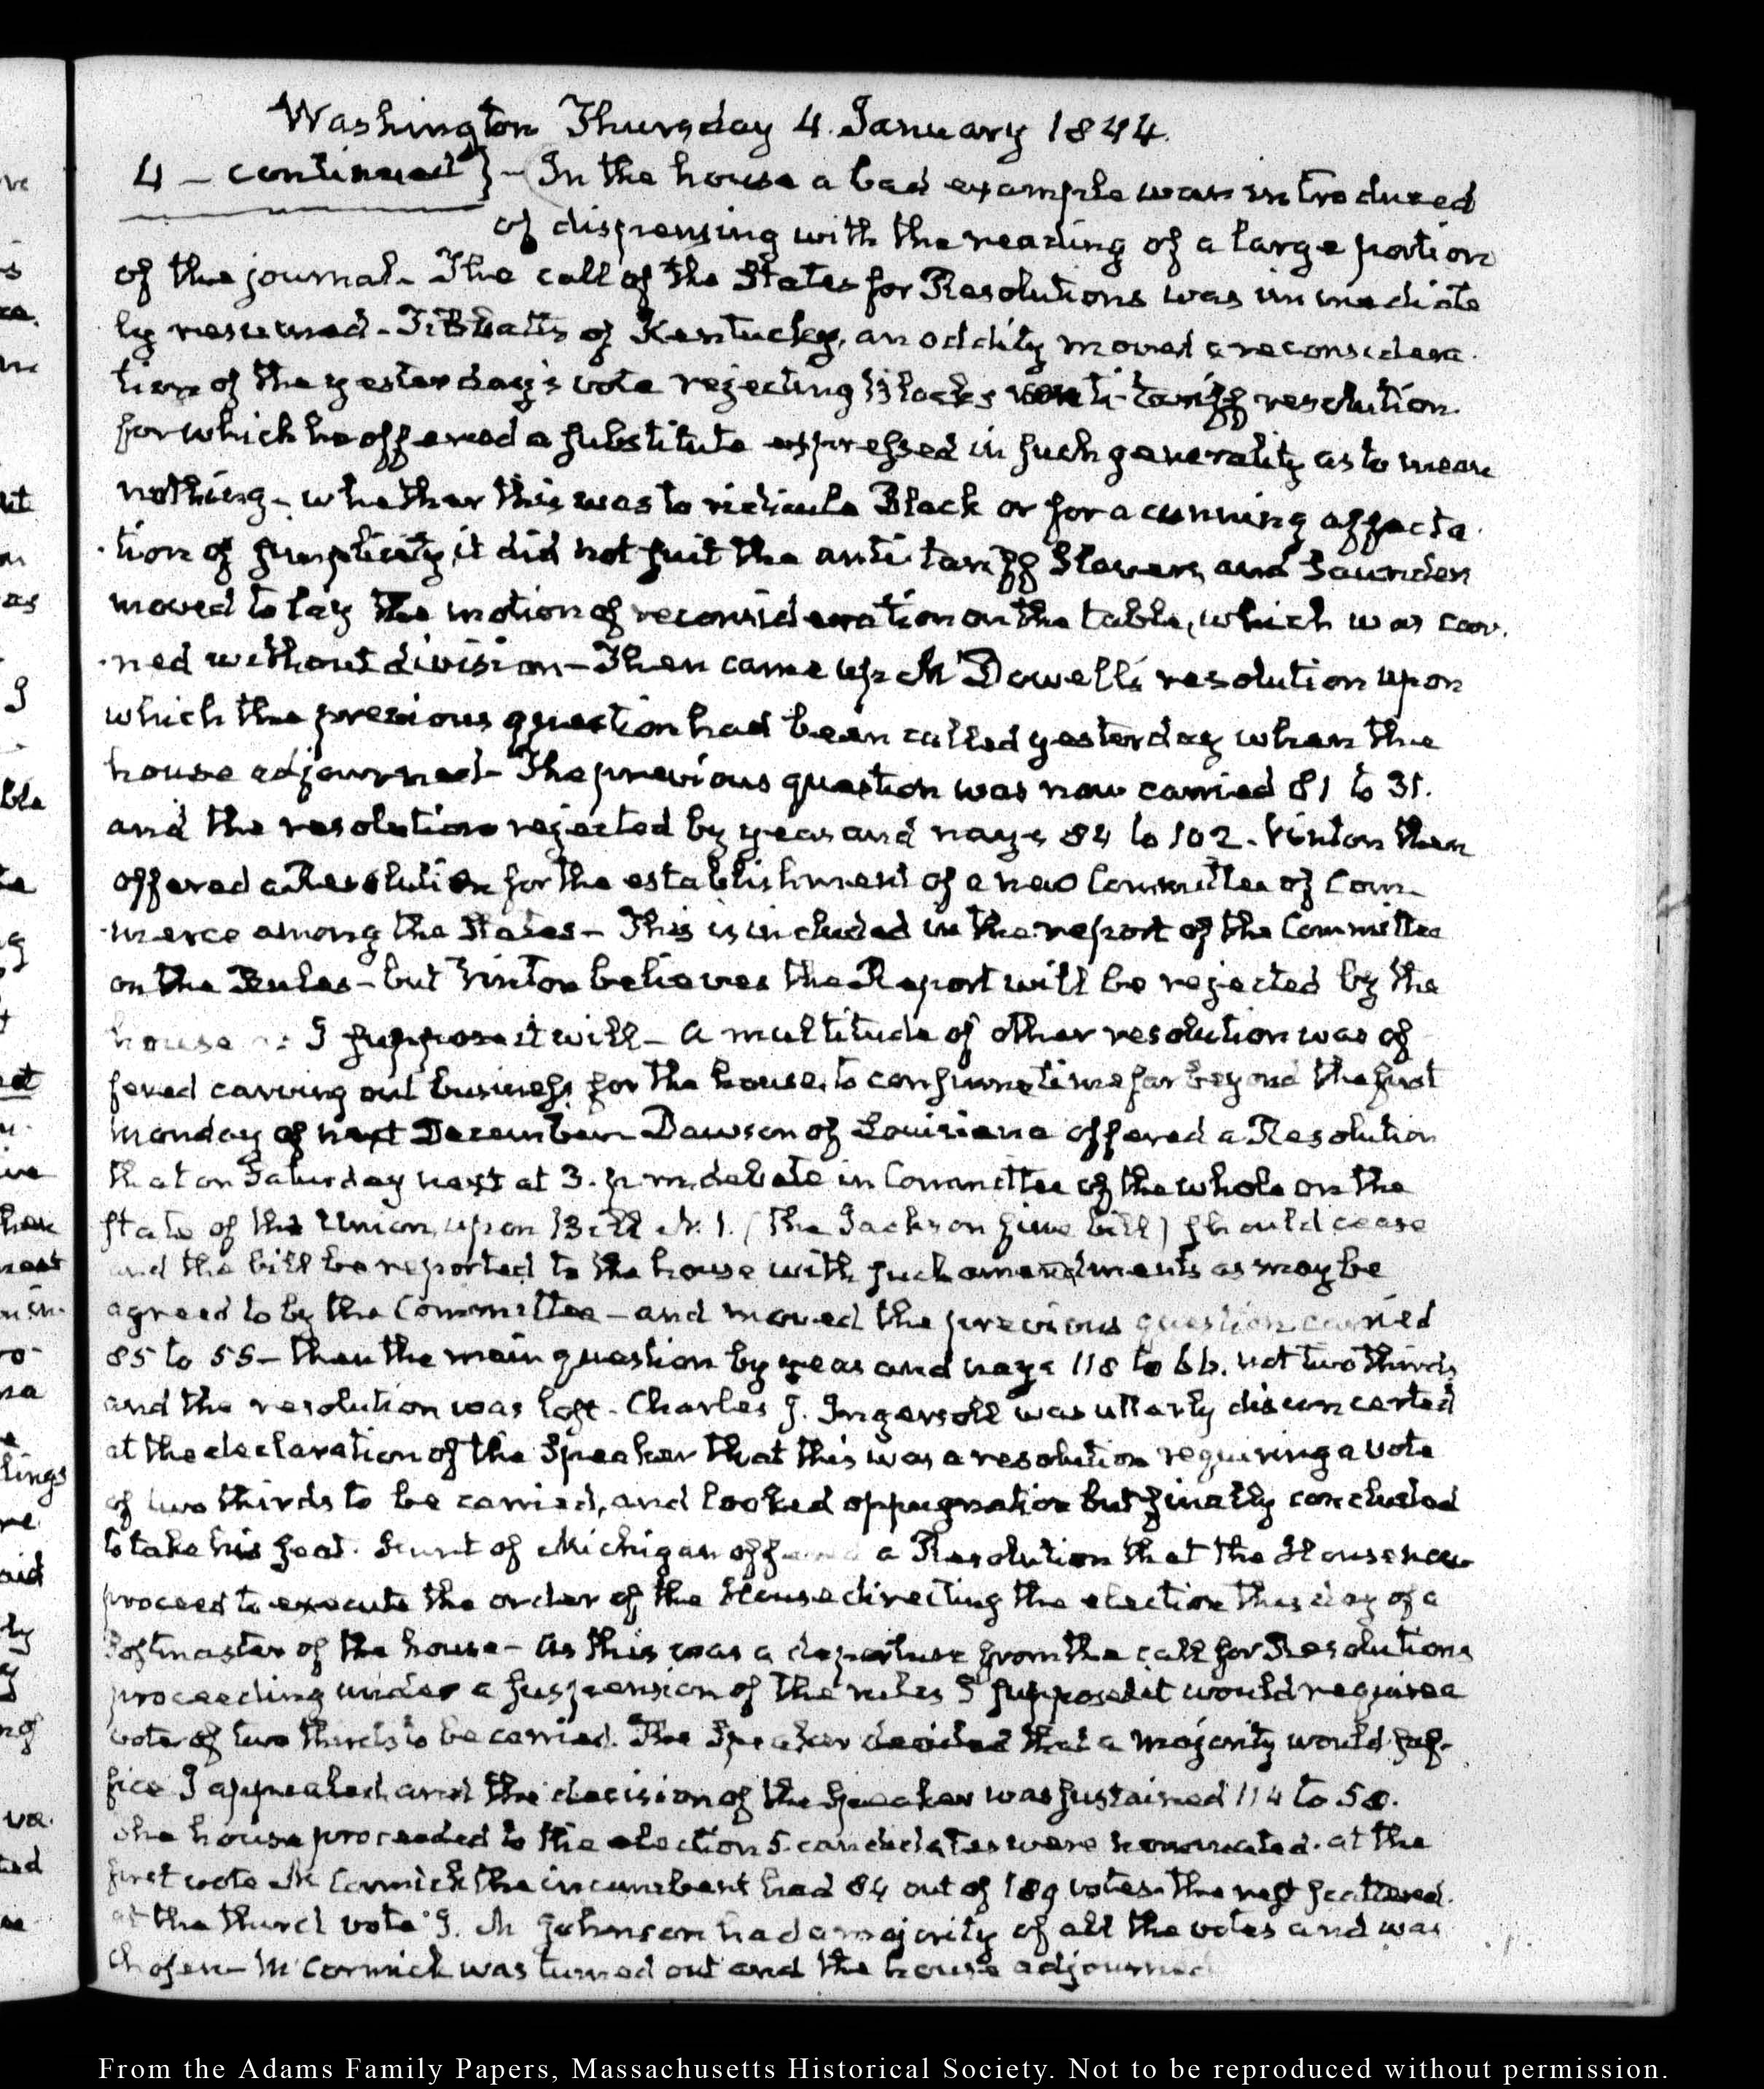 Washington Thursday 4. January 1844.
4 – continued} – In the house a bad example was introduced
of dispensing with the reading of a large portion
of the journal – The call of the States for Resolutions was immediate
ly resumed – Tibbatts of Kentucky, an oddity moved a reconsidera-
tion of the yesterday's vote rejecting Black's anti-tariff resolution.
for which he offered a substitute expressed in such generality as to mean
nothing – whether this was to ridicule Black or for a cunning affecta-
-tion of simplicity, it did not suit the anti tariff Slavers, and Saunders
moved to lay the motion of reconsideration on the table, which was car-
-ried without division – Then came up McDowell's resolution upon
which the previous question had been called yesterday when the
house adjourned – The previous question was now carried 81 to 31.
and the resolution rejected by yeas and nays 84 to 102. Vinton then
offered a Resolution for the establishment of a new Committee of Com-
-merce among the States – This is included in the report of the Committee
on the Rules – but Vinton believes the Report will be rejected by the
house I suppose it will – a multitude of other resolution was of
fered carving out business for the house, to consume time far beyond the first
Monday of next December – Dawson of Louisiana offered a Resolution
that on Saturday next at 3. p.m. debate in Committee of the whole on the
state of the Union, upon Bill N. 1. (the Jackson fine bill) should cease
and the bill be reported to the house with such amendments as may be
agreed to by the Committee – and moved the previous question carried
85 to 55 – then the main question by yeas and nays 118 to 66. not two thirds
and the resolution was lost – Charles J. Ingersoll was utterly disconcerted
at the declaration of the Speaker that this was a resolution requiring a vote
of two thirds to be carried, and looked oppugnation but finally concluded
to take his seat. Hunt of Michigan offered a Resolution that the House now
proceed to execute the order of the House directing the election this day of a
Postmaster of the house – as this was a departure from the call for Resolutions
proceeding under a suspension of the rules I supposed it would require a
vote of two thirds to be carried. The Speaker decided that a majority would suf-
fice I appealed and the decision of the Speaker was sustained 114 to 50.
The house proceeded to the election 5. candidates were nominated. at the
first vote McCormick the incumbent had 84 out of 189 votes. the rest scattered.
at the third vote J. M Johnson had a majority of all the votes and was
chosen – McCormick was turned out and the house adjourned
From the Adams Family Papers, Massachusetts Historical Society. Not to be reproduced without permission.